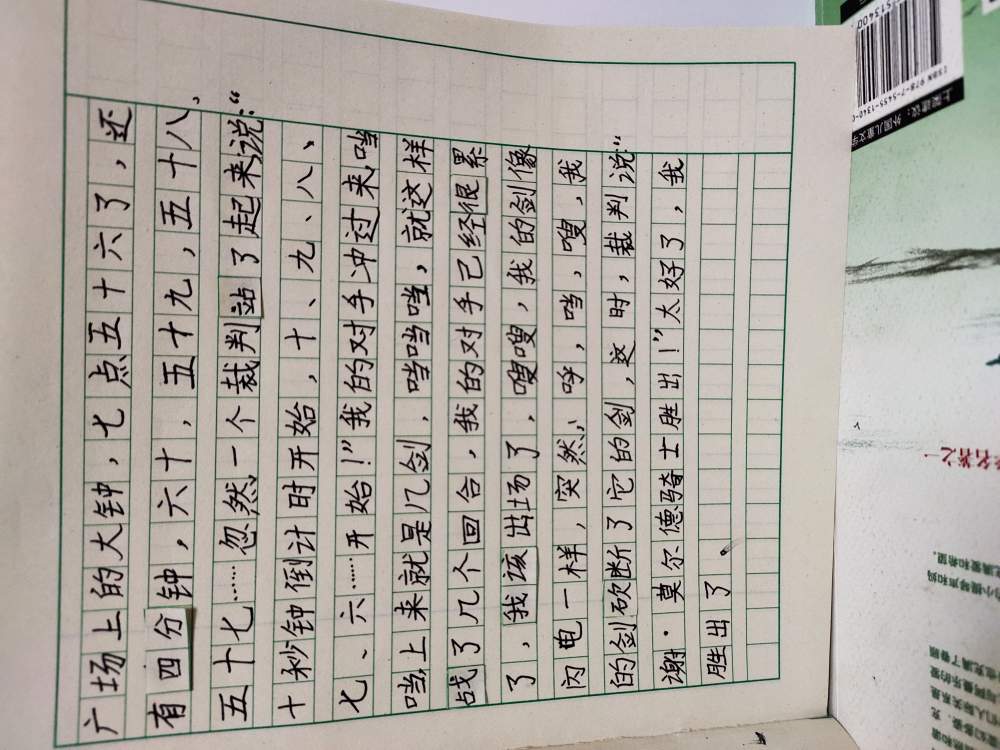 广场上的大钟，七点五十六了，还
有四分钟，六十，五十九，五十八，
五十七……忽然，一个裁判站了起来说：“
十秒钟倒计时开始，十、九、八、
七、六……开始！”我的对手冲过来，当
当，上来就是几剑，当当当，就这样
战了几个回合，我的对手已经很累
了，我该出场了，嗖嗖，我的剑像
闪电一样，突然，呼，当，嗖，我
的剑砍断了它的剑，这时，裁判说：“
谢·莫尔德骑士胜出！”太好了，我
胜出了
ISBN 978-7-5455-1340-0
上架建议：外国儿童文学
名著之一